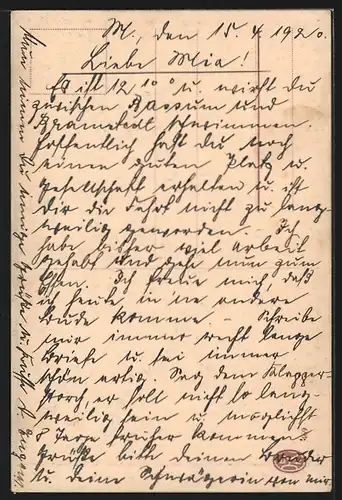 M., den 15.4.1920.
Liebe Mia!
Es ist 12 10° u. wirst du
zwischen Bassum und
Bramstedt schwimmen.
Hoffentlich hast du noch
einen guten Platz u.
Gesellschaft erhalten u. ist
dir die Fahrt nicht zu lang-
weilig geworden. Ich
habe bisher viel Arbeit
gehabt und gehe nun zum
Essen. Ich freue mich, daß
ich heute in ne andere
Bude komme – Schreibe
mir immer recht lange
Briefe u. sei immer
schön artig. Sag dem Klapper-
storch, er soll nicht so lang-
weilig sein u. möglichst
8 Tage früher kommen.
Grüße bitte deinen Bruder
u. deine Schwägerin von mir.
Nun nimm du innige Grüße u. Küsse v.